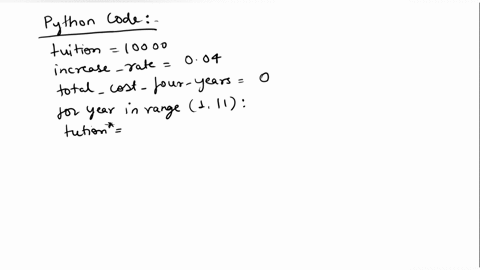 Python Code:-
tuition = 10000
increase_rate = 0.04
total_cost_four_years = 0
for year in range (1, 11):
tution *=